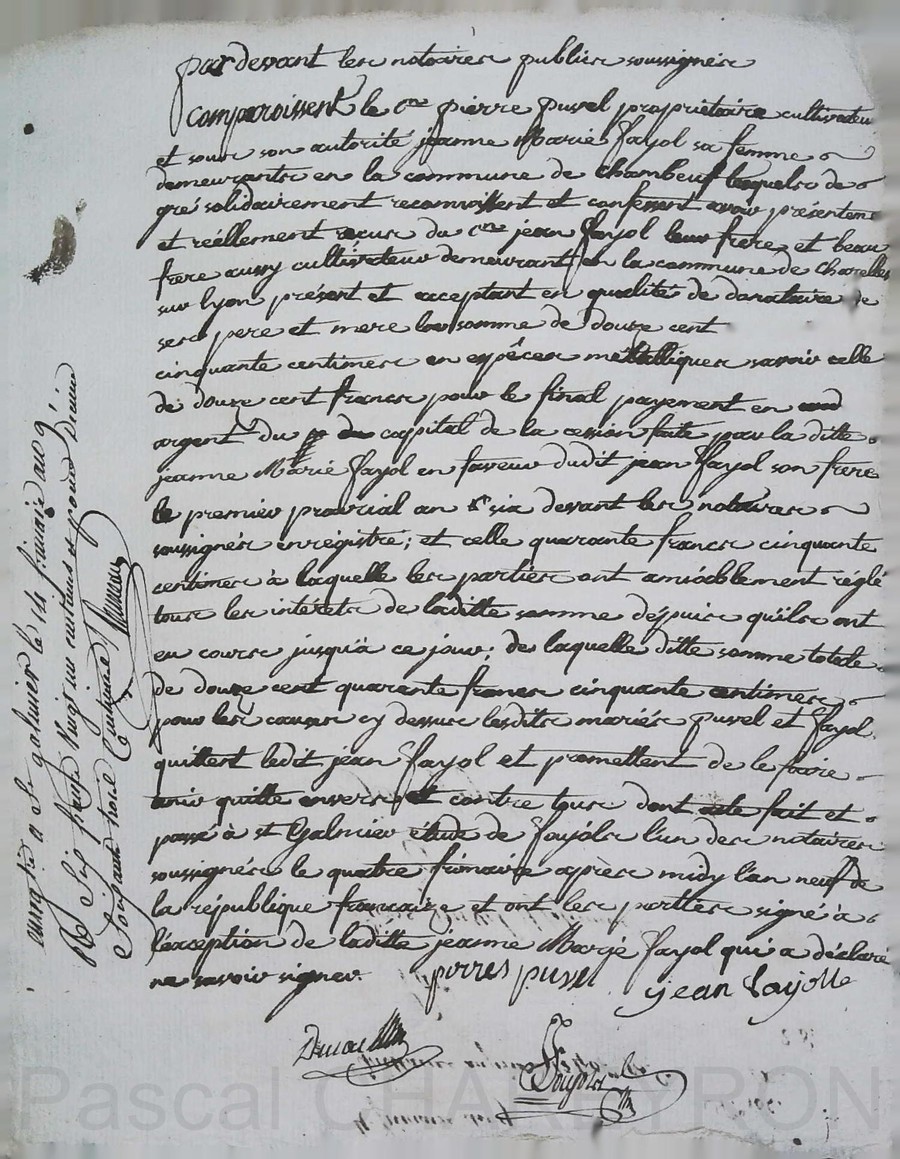 pardevant les notaires publics soussignés
Comparoissent le Cne pierre puvel propriétaire cultivateur
et sous son autorité jeanne Marie fayol sa femme
demeurants en la commune de Chambeuf lesquels de
gré solidairement reconnoissent et confessent avoir présentem
et réellement reçus du cne jean fayol leur frere et beau
frere aussy cultivateur demeurant en la commune de Chazelles
sur lyon présent et acceptant en qualité de donataire de
ses pere et mere la somme de douze cent
cinquante centimes en espêces métalliques savoir celle
de douze cent francs pour le final payement en
argent du capital de la cession faite par la ditte
jeanne Marie fayol en faveur dudit jean fayol son frere
le premier prairial an six devant les notaires
soussignés enregistré; et celle quarante francs cinquante
centimes à laquelle les parties ont amiablement réglé
tous les intérets de laditte somme dépuis qu'ils ont
en cours jusqu'à ce jour; de laquelle ditte somme totale
de douze cent quarante francs cinquante centimes
pour les causes cy dessus lesdits mariés puvel et fayol
quittent ledit jean fayol et promettent de le faire
tenir quitte envers et contre tous dont acte fait et
passé à st Galmier étude de fayols l'un des notaires
soussignés le quatre frimaire après midy l'an neuf de
la république francaise et ont les parties signé à
l'exception de laditte jeanne Marie fayol qui a déclaré
ne savoir signer. pierres puvel jean fayolle
fayols
enregtré a St galmier le 14 frimaire an 9
Rç Six francs Vingt un centimes et pour
Soixante trois Centimes
Pascal CHAREYRON